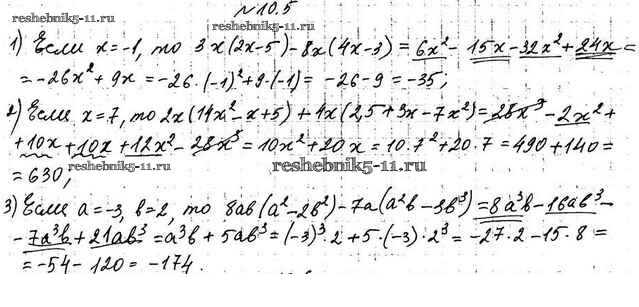 №10.5
reshebnik5-11.ru
1) Если x=-1, то 3x(2x-5)-8x(4x-3)=6x²-15x-32x²+24x=
=-26x²+9x=-26·(-1)²+9·(-1)=-26-9=-35;
2) Если x=7, то 2x(14x²-x+5)+4x(2,5+3x-7x²)=28x³-2x²+
+10x+10x+12x²-28x³=10x²+20x=10·7²+20·7=490+140=
reshebnik5-11.ru
reshebnik5-11.ru
=630;
3) Если a=-3, b=2, то 8ab(a²-2b²)-7a(a²b-3b³)=8a³b-16ab³-
-7a³b+21ab³=a³b+5ab³=(-3)³·2+5·(-3)·2³=-27·2-15·8=
=-54-120=-174.